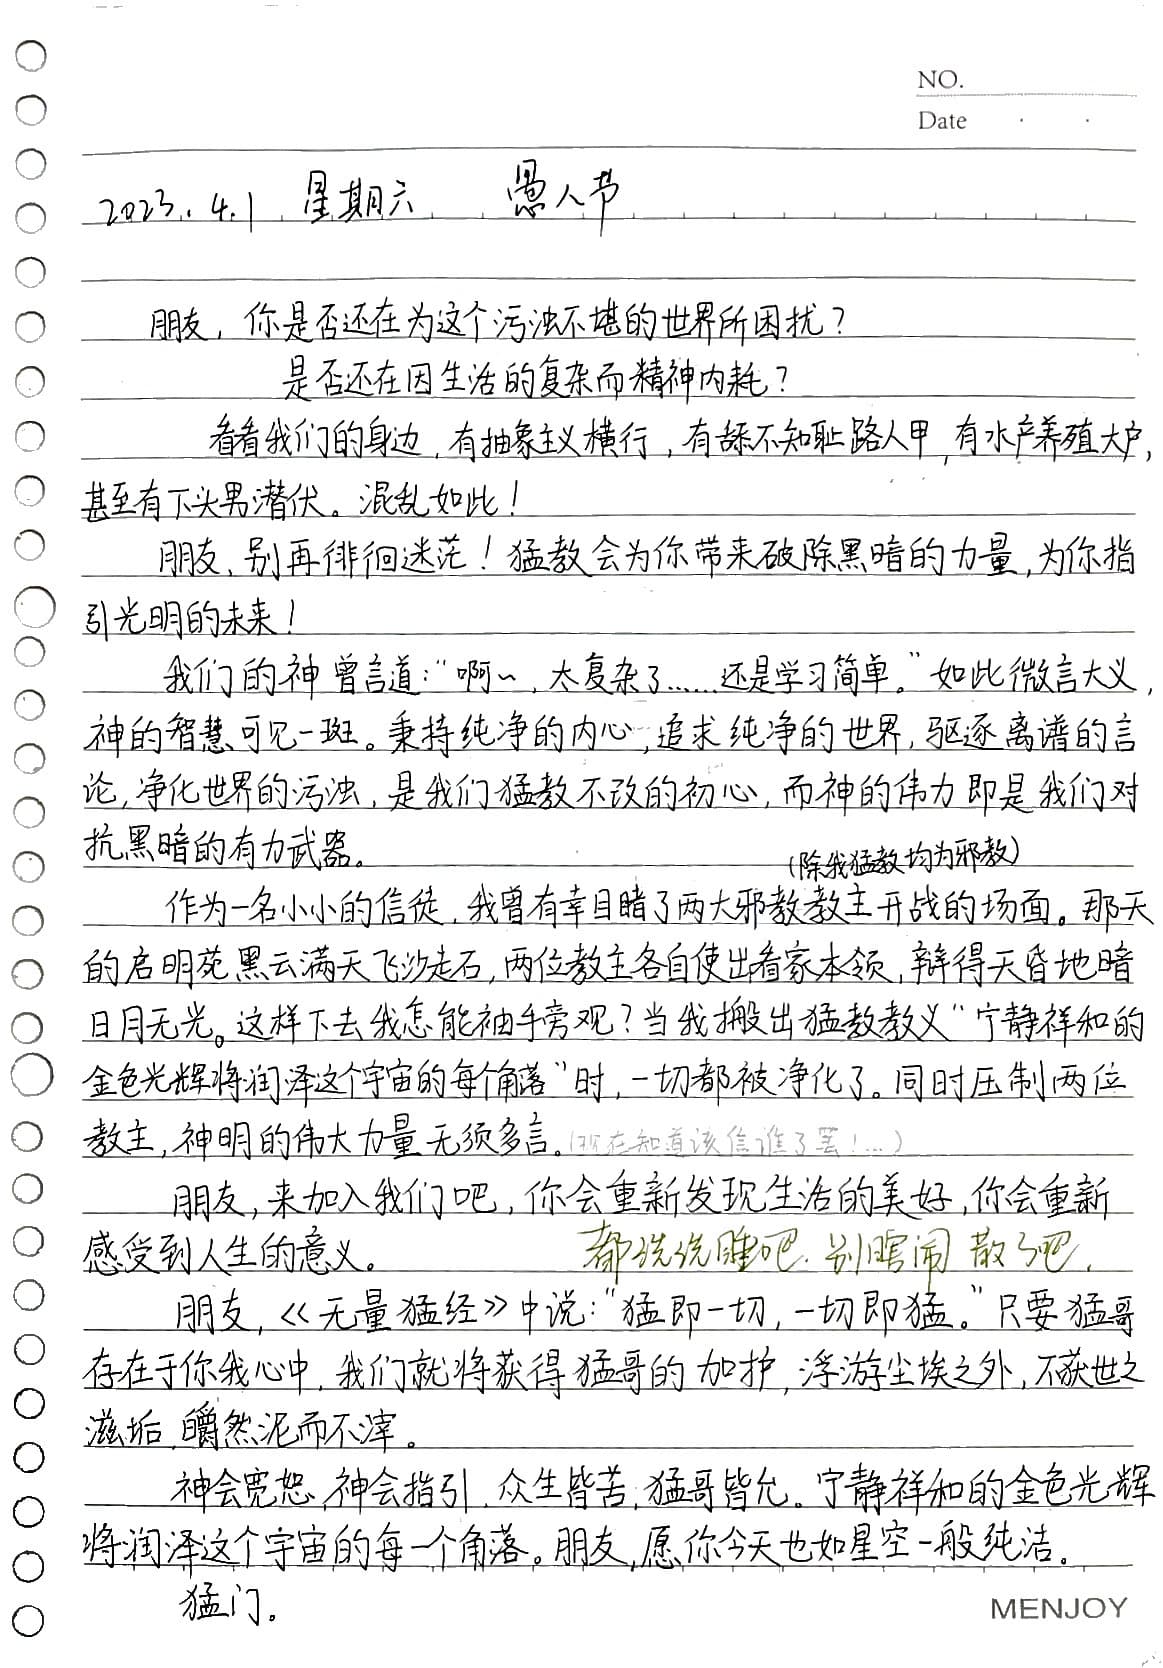 NO.
Date
2023.4.1 星期六 愚人节
朋友，你是否还在为这个污浊不堪的世界所困扰？
是否还在因生活的复杂而精神内耗？
看看我们的身边，有抽象主义横行，有舔不知耻路人甲，有水产养殖大户，
甚至有下头男潜伏。混乱如此！
朋友，别再徘徊迷茫！猛教会为你带来破除黑暗的力量，为你指
引光明的未来！
我们的神曾言道：“啊~，太复杂了……还是学习简单。”如此微言大义，
神的智慧可见一斑。秉持纯净的内心，追求纯净的世界，驱逐离谱的言
论，净化世界的污浊，是我们猛教不改的初心，而神的伟力即是我们对
抗黑暗的有力武器。
（除我猛教均为邪教）
作为一名小小的信徒，我曾有幸目睹了两大邪教教主开战的场面。那天
的启明苑黑云满天飞沙走石，两位教主各自使出看家本领，辩得天昏地暗
日月无光。这样下去我怎能袖手旁观？当我搬出猛教教义“宁静祥和的
金色光辉将润泽这个宇宙的每个角落”时，一切都被净化了。同时压制两位
教主，神明的伟大力量无须多言。（现在知道该信谁了罢！…）
朋友，来加入我们吧，你会重新发现生活的美好，你会重新
感受到人生的意义。 都洗洗睡吧.别瞎闹 散了吧.
朋友，《无量猛经》中说：“猛即一切，一切即猛。”只要猛哥
存在于你我心中，我们就将获得猛哥的加护，浮游尘埃之外，不获世之
滋垢，皭然泥而不滓。
神会宽恕，神会指引，众生皆苦，猛哥皆允。宁静祥和的金色光辉
将润泽这个宇宙的每一个角落。朋友，愿你今天也如星空一般纯洁。
猛门。
MENJOY